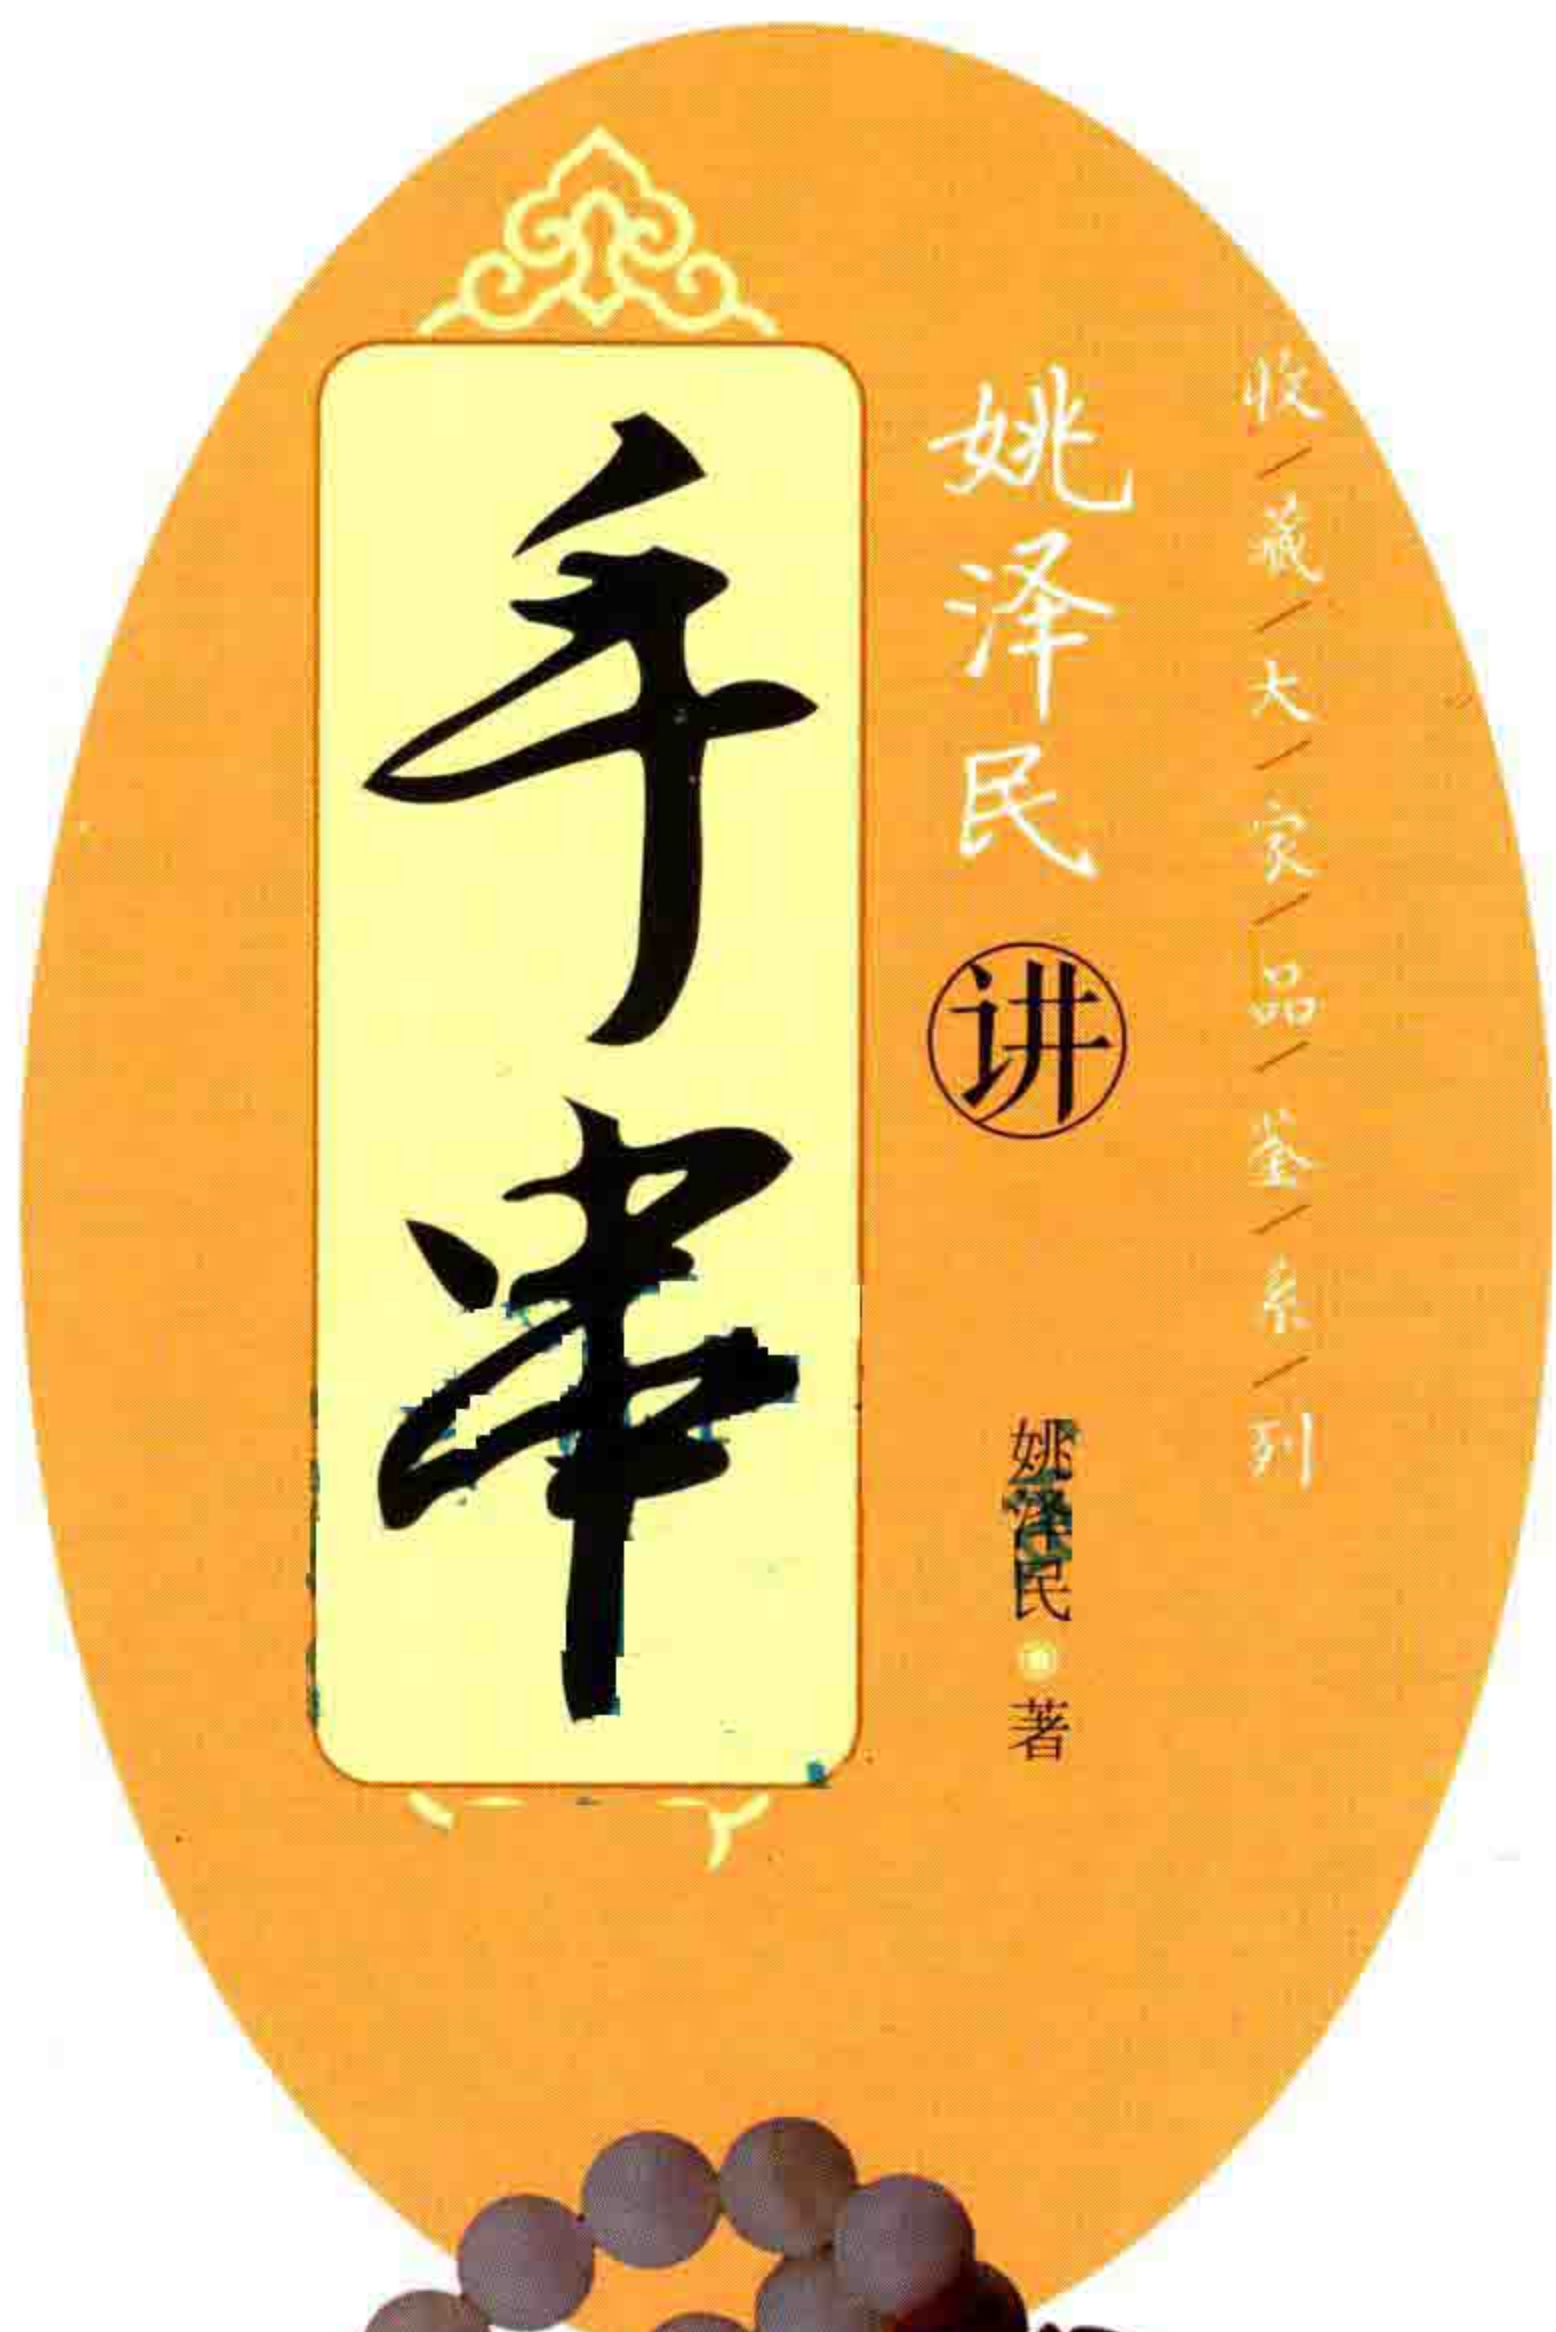 收/藏/大/家/品/鉴/系/列
姚泽民
讲
手串
姚泽民·著